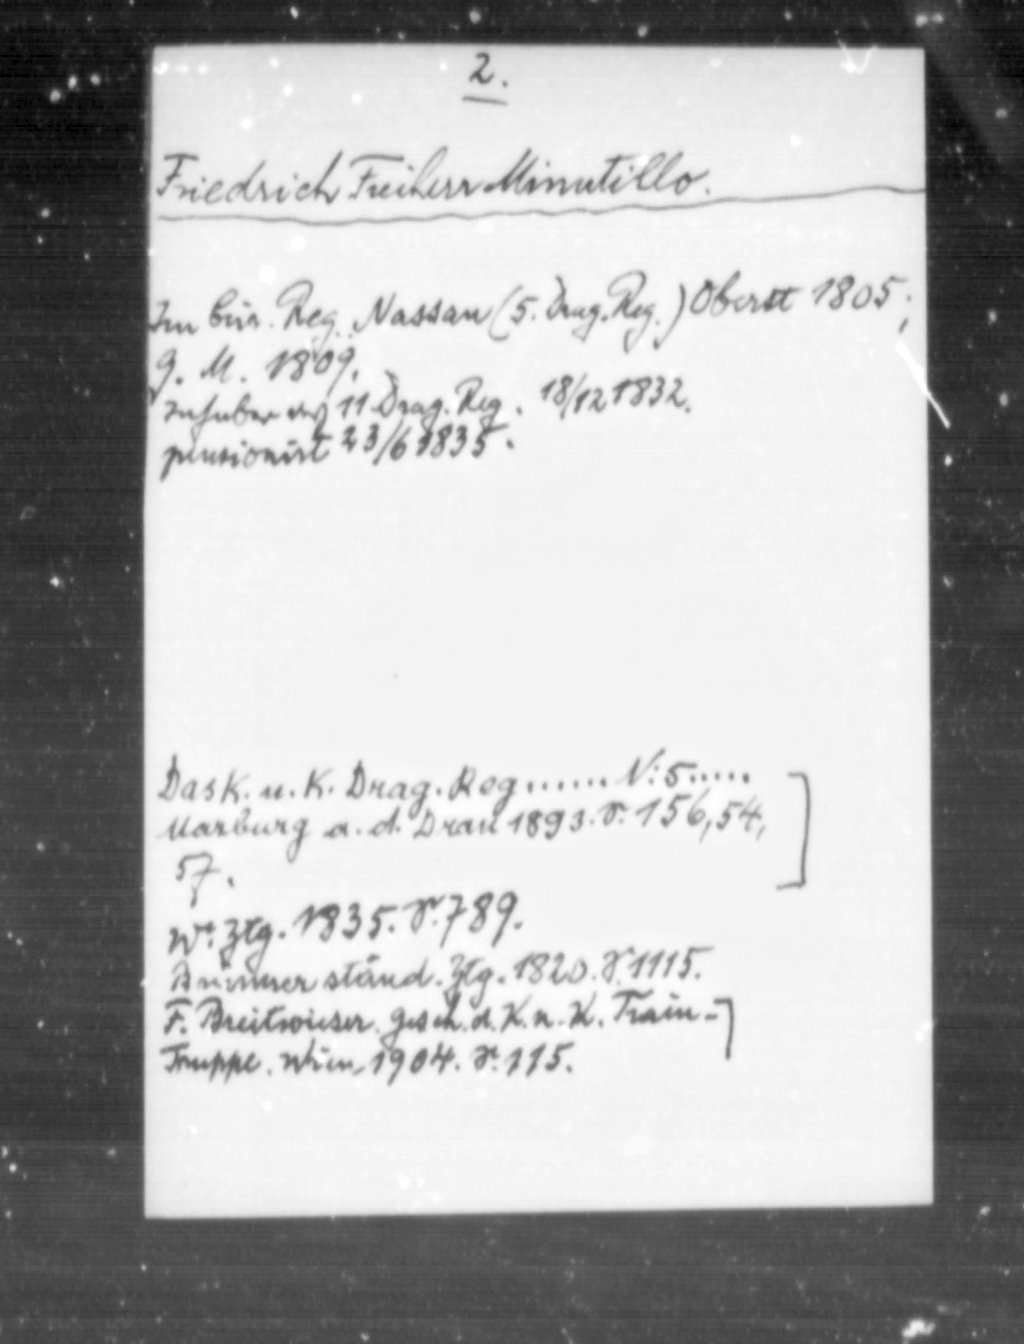 2.
Friedrich Freiherr Minutillo.
Im Cür. Reg. Nassau (5. Drag. Reg.) Oberst 1805;
G. M. 1809.
Inhaber des 11. Drag. Reg. 18/12 1832.
pensionirt 23/6 1835.
Das K. u. K. Drag. Reg...... N: 5.....
Marburg a. d. Drau 1893. S. 156, 54,
57.
Wr. Ztg. 1835. S. 789.
Brünner ständ. Ztg. 1820. S. 1115.
F. Breitwieser. Gesch. d. K. u. K. Train-
Truppe. Wien, 1904. S. 115.